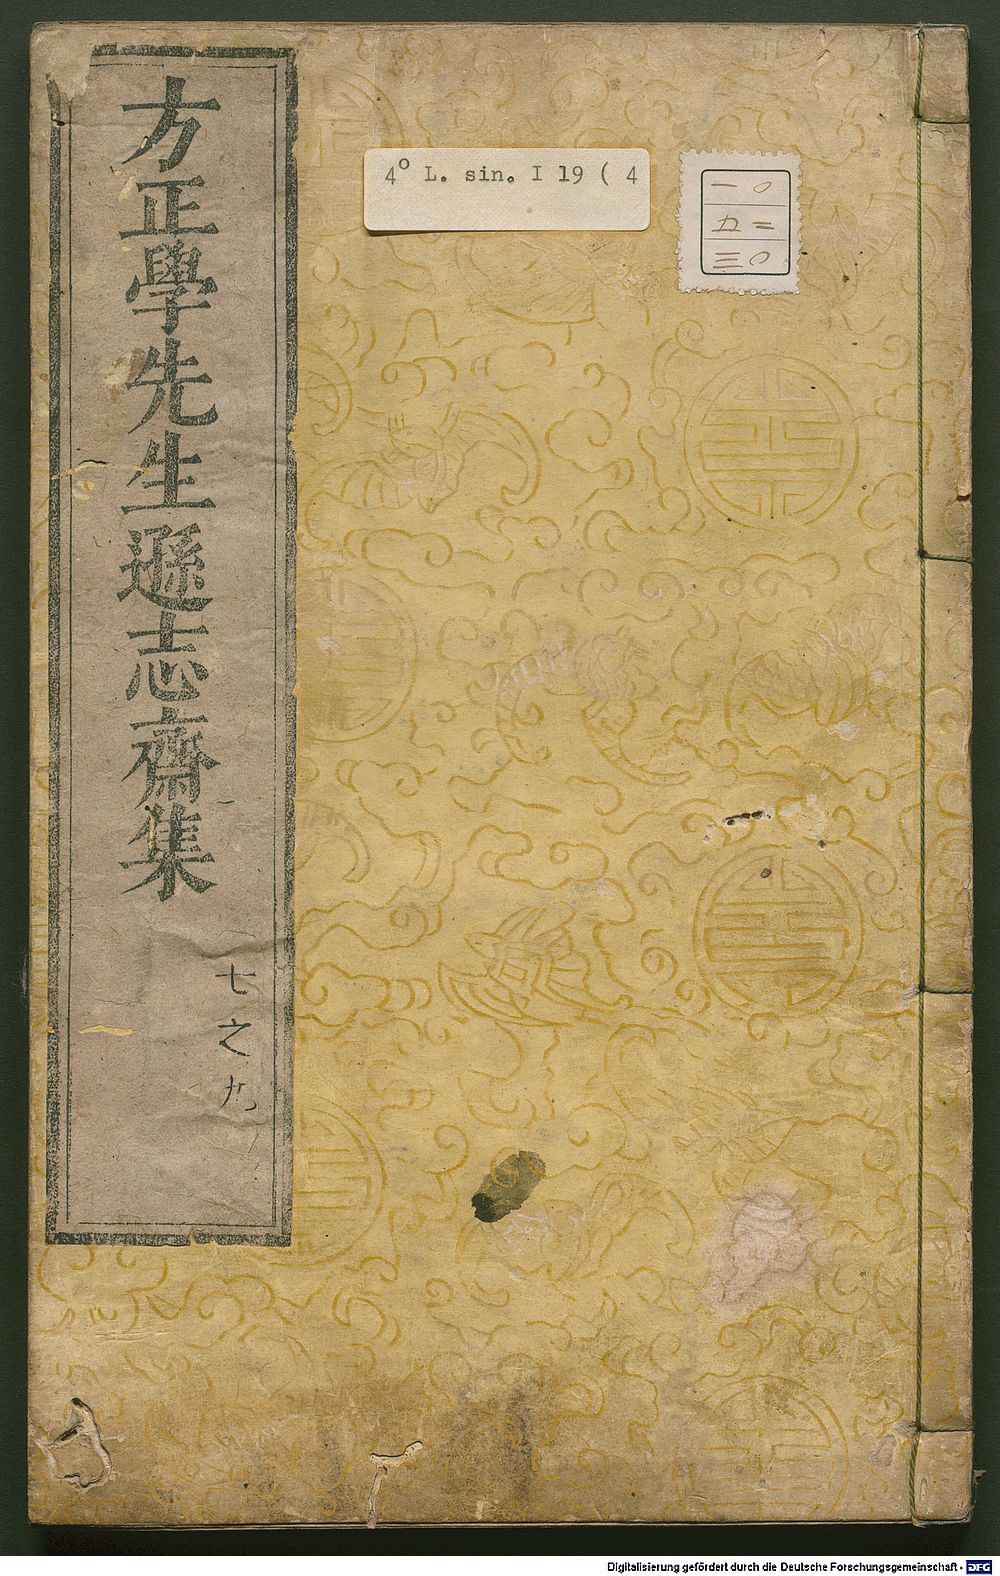 方正學先生遜志齋集
七之九
4° L. sin. I 19 ( 4
一〇
五二
三〇
Digitalisierung gefördert durch die Deutsche Forschungsgemeinschaft - DFG